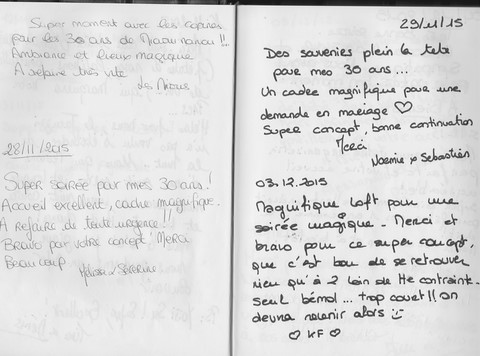 Super moment avec les copines
pour les 30 ans de !!
Ambiance et lieux magique
A refaire très vite
Les
28/11/2015
Super soirée pour mes 30 ans!
Accueil excellent, cadre magnifique.
A refaire de toute urgence!!
Bravo par votre concept Merci
Beaucoup
Séverine
29/11/15
Des souvenirs plein la tete
pour mes 30 ans...
Un cadre magnifique pour une
demande en mariage ♡
Super concept, bonne continuation
Merci
Noemie x Sebastien
03.12.2015
Magnifique Loft pour une
soirée magique. Merci et
bravo pour ce super concept,
que c'est bon de se retrouver
rien qu'à 2 loin de tte contrainte.
seul bémol... trop court!! on
devra revenir alors
♡ KF ♡